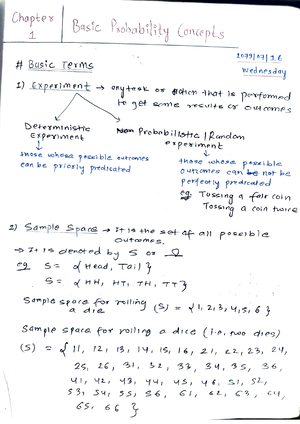 Chapter 1
Basic Probability Concepts
2079/07/16
Wednesday
# Basic Terms
1) Experiment → any task or action that is performed
to get some results or outcomes
Deterministic
Experiment
Probabilistic / Random
experiment
those whose possible outcomes
can be priorly predicated
those whose possible
outcomes can be not be
perfectly predicated
eg. Tossing a fair coin
Tossing a coin twice
2) Sample Space → It is the set of all possible
outcomes.
→ It is denoted by S or Ω
eg S = {Head, Tail}
S = {HH, HT, TH, TT}
Sample space for rolling a die (S) = {1, 2, 3, 4, 5, 6}
Sample space for rolling a dice (i.e. two dies)
(S) = { 11, 12, 13, 14, 15, 16, 21, 22, 23, 24,
25, 26, 31, 32, 33, 34, 35, 36,
41, 42, 43, 44, 45, 46, 51, 52,
53, 54, 55, 56, 61, 62, 63, 64,
65, 66 }